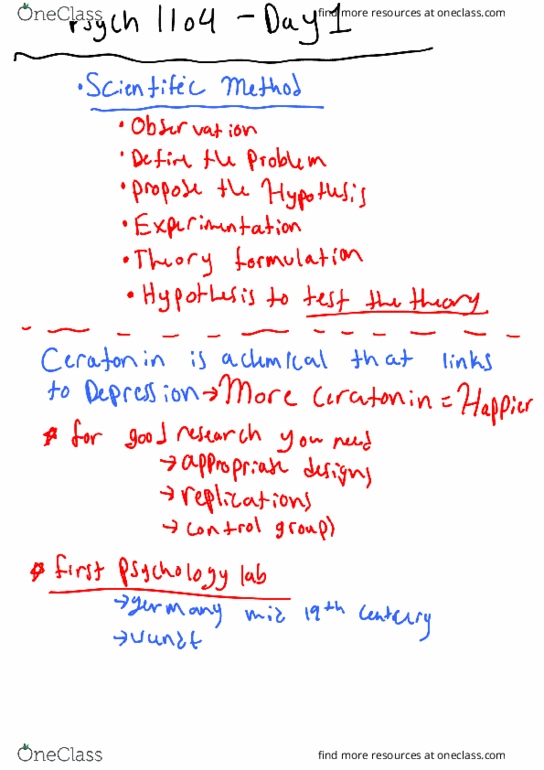 OneClass
find more resources at oneclass.com
Psych 1104 - Day 1
• Scientific Method
• Observation
• Define the Problem
• Propose the Hypothesis
• Experimentation
• Theory formulation
• Hypothesis to test the theory
Ceratonin is a chemical that links
to Depression → More ceratonin = Happier
* for good research you need
→ appropriate designs
→ replications
→ control groups
* first psychology lab
→ germany mid 19th century
→ wundt
OneClass
find more resources at oneclass.com